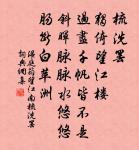 梳洗罷
獨倚望江樓
過盡千帆皆不是
斜暉脉脉水悠悠
腸斷白苹洲
溫庭筠望江南梳洗罷
詞典網集